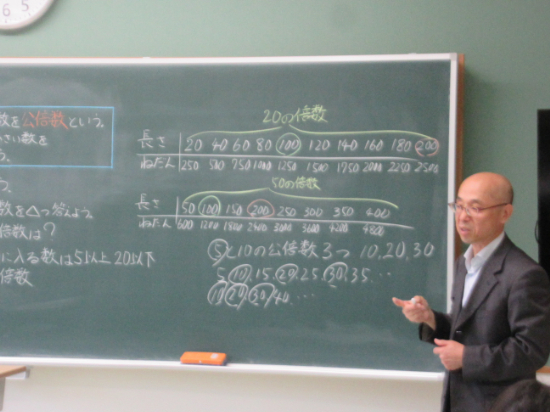 20の倍数
長さ 20 40 60 80 100 120 140 160 180 200
ねだん 250 500 750 1000 1250 1500 1750 2000 2250 2500
50の倍数
長さ 50 100 150 200 250 300 350 400
ねだん 600 1200 1800 2400 3000 3600 4200 4800
⑤と10の公倍数3つ 10,20,30
5 10 15 20 25 30 35…
10 20 30 40…
数を公倍数という。
さい数を
う。
う。
数を△つ答えよう。
倍数は?
に入る数は5以上20以下
倍数